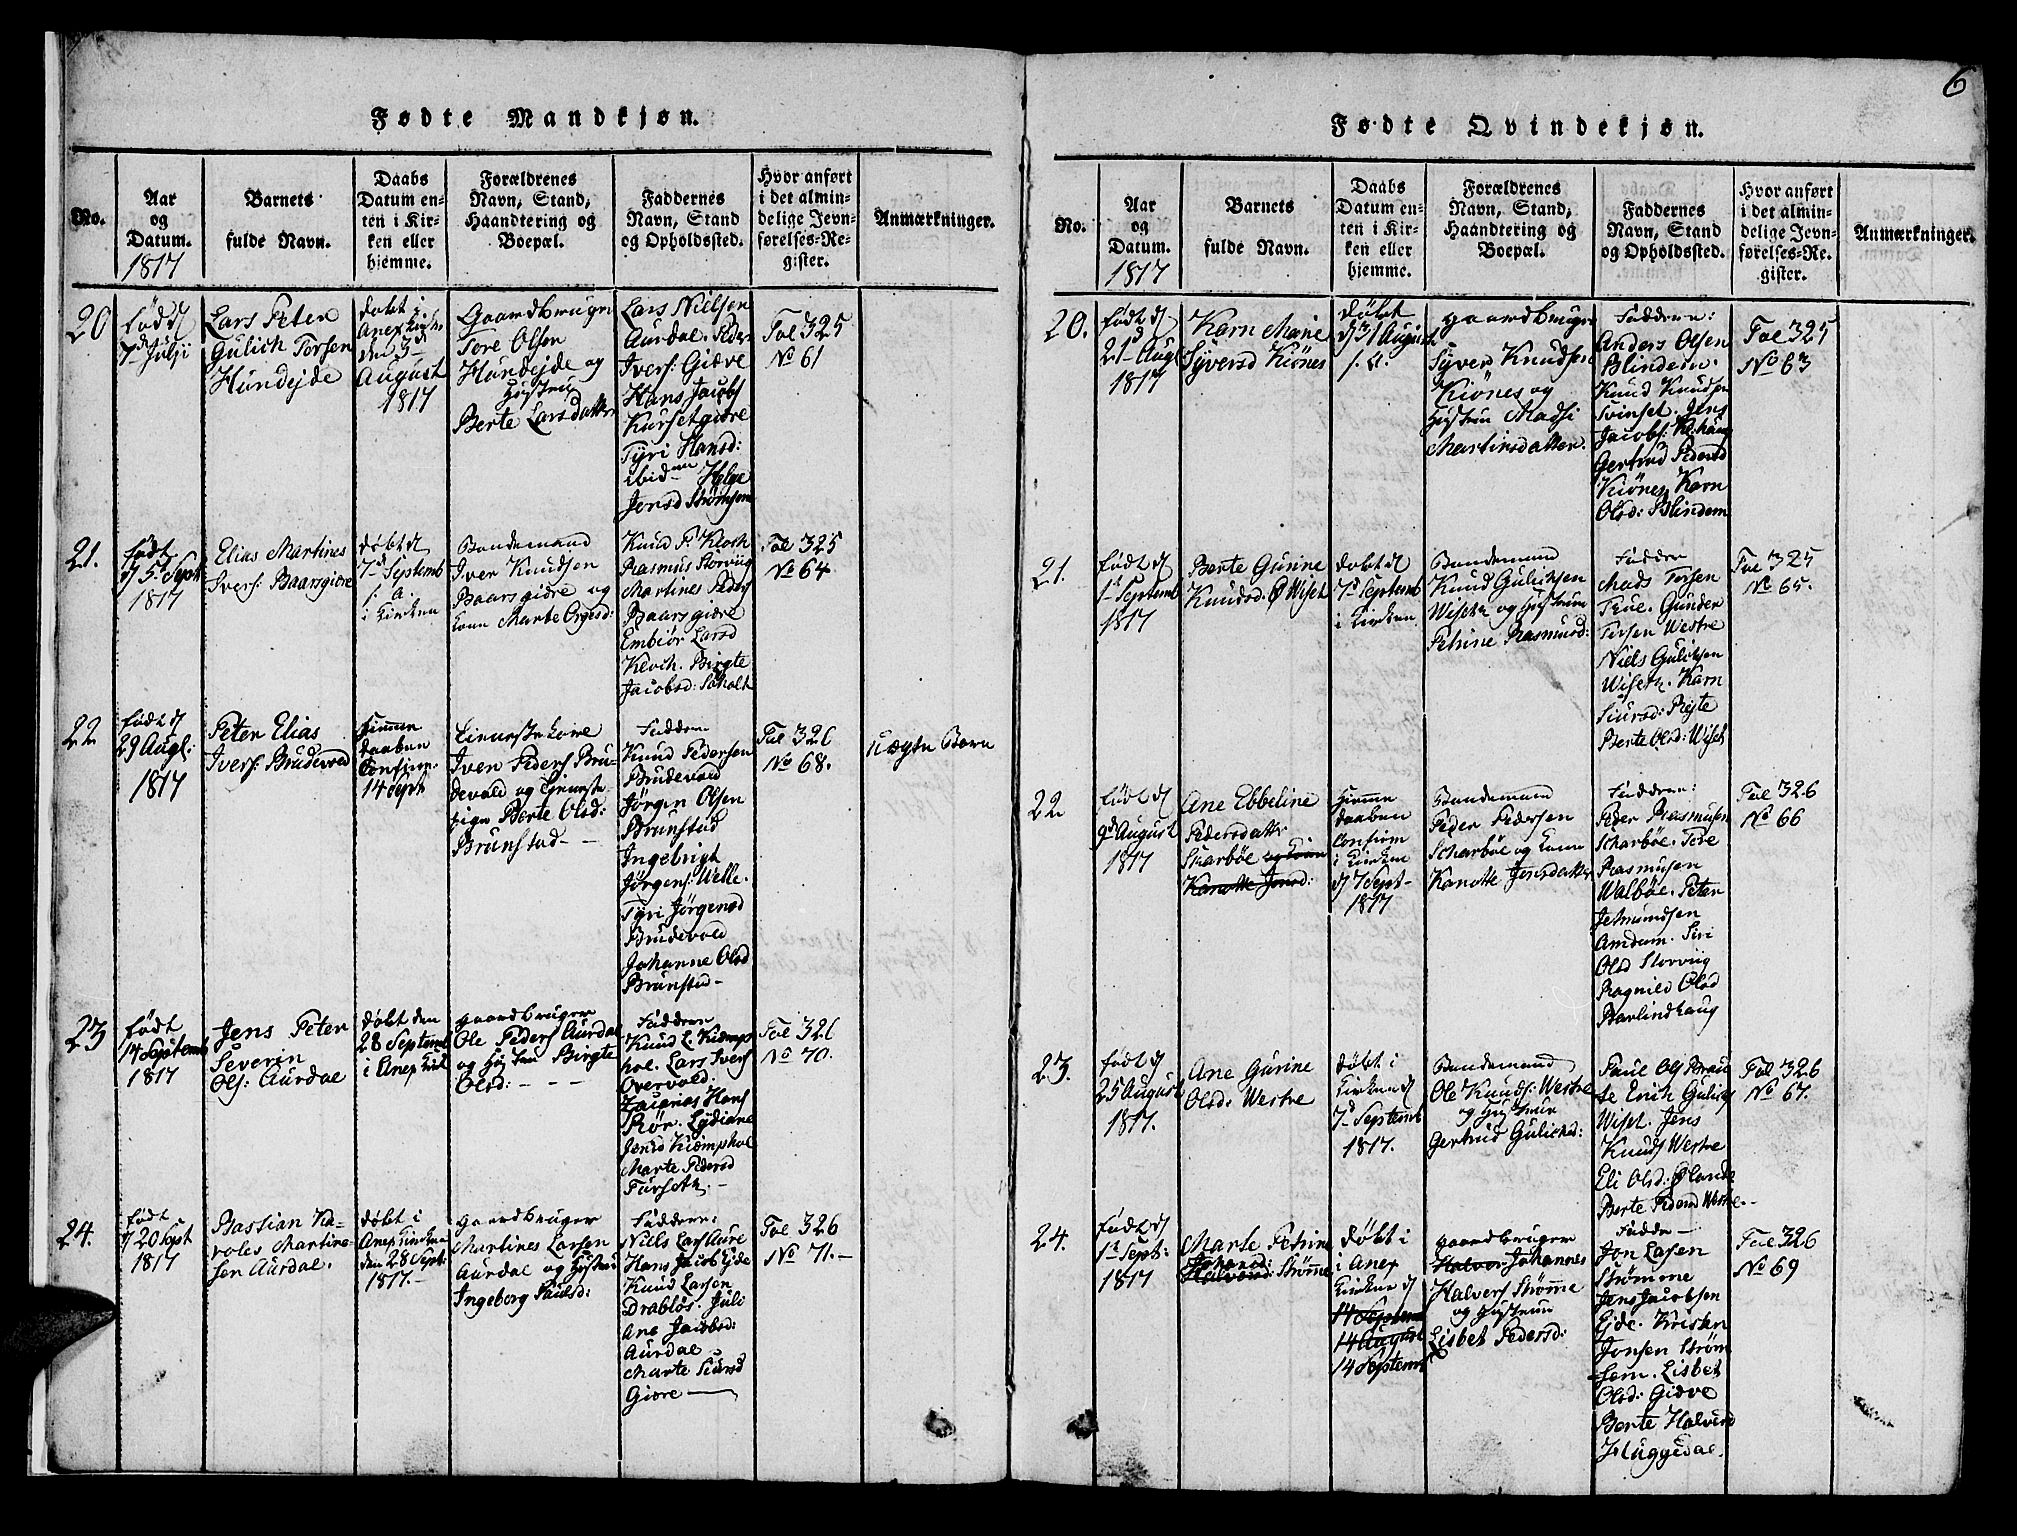 6
Fødte Mandkjøn.
No.
Aar
og
Datum.
1817
Barnets
fulde Navn.
Daabs
Datum en-
ten i Kir-
ken eller
hjemme.
Forældrenes
Navn, Stand,
Haandtering og
Boepæl.
Faddernes
Navn, Stand
og Opholdssted.
Hvor anført
i det almin-
delige Jevn-
førelses-Re-
gister.
Anmærkninger.
20
fød d
7de Julji
Lars Peter
Gulich Torsen
Hundejde
døbt i
Anex Kirken
den 3d
August
1817
Gaardbruger
Tore Olsen
Hundejde og
Hustrue
Berte Larsdatter
Lars Nielsen
Aurdal. Peder
Ivers: Giære
Hans Jacobs
Kursetgiære
Tyri Hansd:
ibidem Helge
Jonsd Strømsem
Fol 325
No 61
21.
født
d 5 Sept
1817
Elias Martines
Ivers: Baarsgiære
døbt d
7d Septemb
s. a.
i Kirken
Bondemand
Iver Knudsen
Baarsgiære og
Kone Marte Orgesd:
Knud P. Kloch
Rasmus Storviig
Martines Peders
Baarsgiære
Embiør Larsd
Kloch. Birgte
Jacobsd: Soholt
Fol 325
No 64
22
født d
29 Augl:
1817
Peter Elias
Ivers: Brudevold
Hiemme
daaben
Confirm.
14 Sept
Tieneste Karl
Iver Peders Bru-
devold og Tieneste
pige Berte Olsd:
Brunstad - -
Faddere
Knud Pedersen
Brudevold
Jørgen Olsen
Brunstad
Ingebrigt
Jørgens: Welle.
Tyri Jørgensd
Brudevold
Johanne Olsd
Brunstad -
Fol 326
No 68.
uægte Barn
23
født
14 Septemb
1817
Jens Peter
Severin
Ols: Aurdal
døbt den
28 Septemb
i Anex Kirk
gaardbruger
Ole Peders Aurdal
og Hustrue Birgte
Olsd: - - -
Faddere
Knud L. Kiemps
hol. Lars Ivers
Overvold.
Zacarias Hans
Rør. Lydiane
Jensd Kiempshol
Marte Pedersd
Furseth. -
Fol 326
No 70.
24.
født
d 20 Sept
1817
Bastian Ka-
roles Martine-
sen Aurdal.
døbt i
Anex Kirken
den 28 Sept
1817. -
gaardbruger
Martines Larsen
Aurdal og Hustrue
Ingeborg Paulsd:
Faddere:
Niels Lars Aure
Hans Jacob Ejde
Knud Larsen
Drabløs. Juli
Ane Jacobsd:
Aurdal.
Marte Siursd
Giøre -
Fol 326
No 71. -
Fødte Qvindekjøn.
No.
Aar
og
Datum.
1817
Barnets
fulde Navn.
Daabs
Datum en-
ten i Kir-
ken eller
hjemme.
Forældrenes
Navn, Stand,
Haandtering og
Boepæl.
Faddernes
Navn, Stand
og Opholdssted.
Hvor anført
i det almin-
delige Jevn-
førelses-Re-
gister.
Anmærkninger.
20.
født d
21d Augl
1817
Karn Marie
Syversd Kiønes
Døbt
d 31 August
s. a.
gaardbruger
Syver Knudsen
Kiønes og
Hustrue Madsi
Martinsdatter.
Faddere:
Anders Olsen
Blindem.
Knud Knudsen
Svinset. Jens
Jacobs:
Gertrud Pedersd
Kiønes, Karn
Olsd: Blindem
Fol 325
No 63
21.
født d
1d Septemb
1817
Berte Gurine
Knudsd. Ø Wiset
døbt d
7d Septemb
i Kirken
Bondemand
Knud Gulichsen
Wiseth og Hustrue
Petrine Rasmusd:
Faddere
Mads Torsen
True. Gunder
Torsen Westre
Niels Gulichsen
Wiseth. Karn
Siursd: Righte
Berte Olsd: Wiset
Fol 325
No 65.
22
født d
9d August
1817
Ane Ebbeline
Pedersdatter
Skarbøe og Kone
Kanutte Jensd:
Hiemme
daaben
Confirm
i Kirken
d 7 Sept -
1817
Bondemand
Peder Pedersen
Scharbøe og Kone
Kanutte Jensdatter
Faddere:
Peder Rasmusen
Scharbøe. Tore
Rasmusen
Walbøe. Peter
Jetmundsen
Amdam. Siri
Olsd Storvug
Ragnild Olsd
Farlindhaug
Fol 326
No 66
23.
født d
25 August
1817.
Ane Gurine
Olsd: Westre
døbt i
Kirken d
7d Septemb
1817.
Bondemand
Ole Knuds: Westre
og Hustrue
Gertrud Gulichsd:
Paul Ols Brau
te Erich Gulichs
Wiset. Jens
Knuds Westre
Eli Olsd: Østande
Berte Pedersd Westre. -
Fol 326
No 67.
24.
født d
1d Sept:
1817
Marte Petrine
Johansd:
Halvorsd: Strømme
Døbt i
i Anex
Kirken d
14 Septemb
14 August
14 Septemb
gaardbruger
Halvor Johannes
Halvors Strømme
og Hustrue
Lisbet Pedersd:
Fadde -
Jon Lasen
Strømme
Jens Jacobsen
Ejde. Kristen
Jonsen Strøm
sem. Lisbet
Olsd: Giære
Berte Halvorsd
Huggedal.
Fol 326
No 69